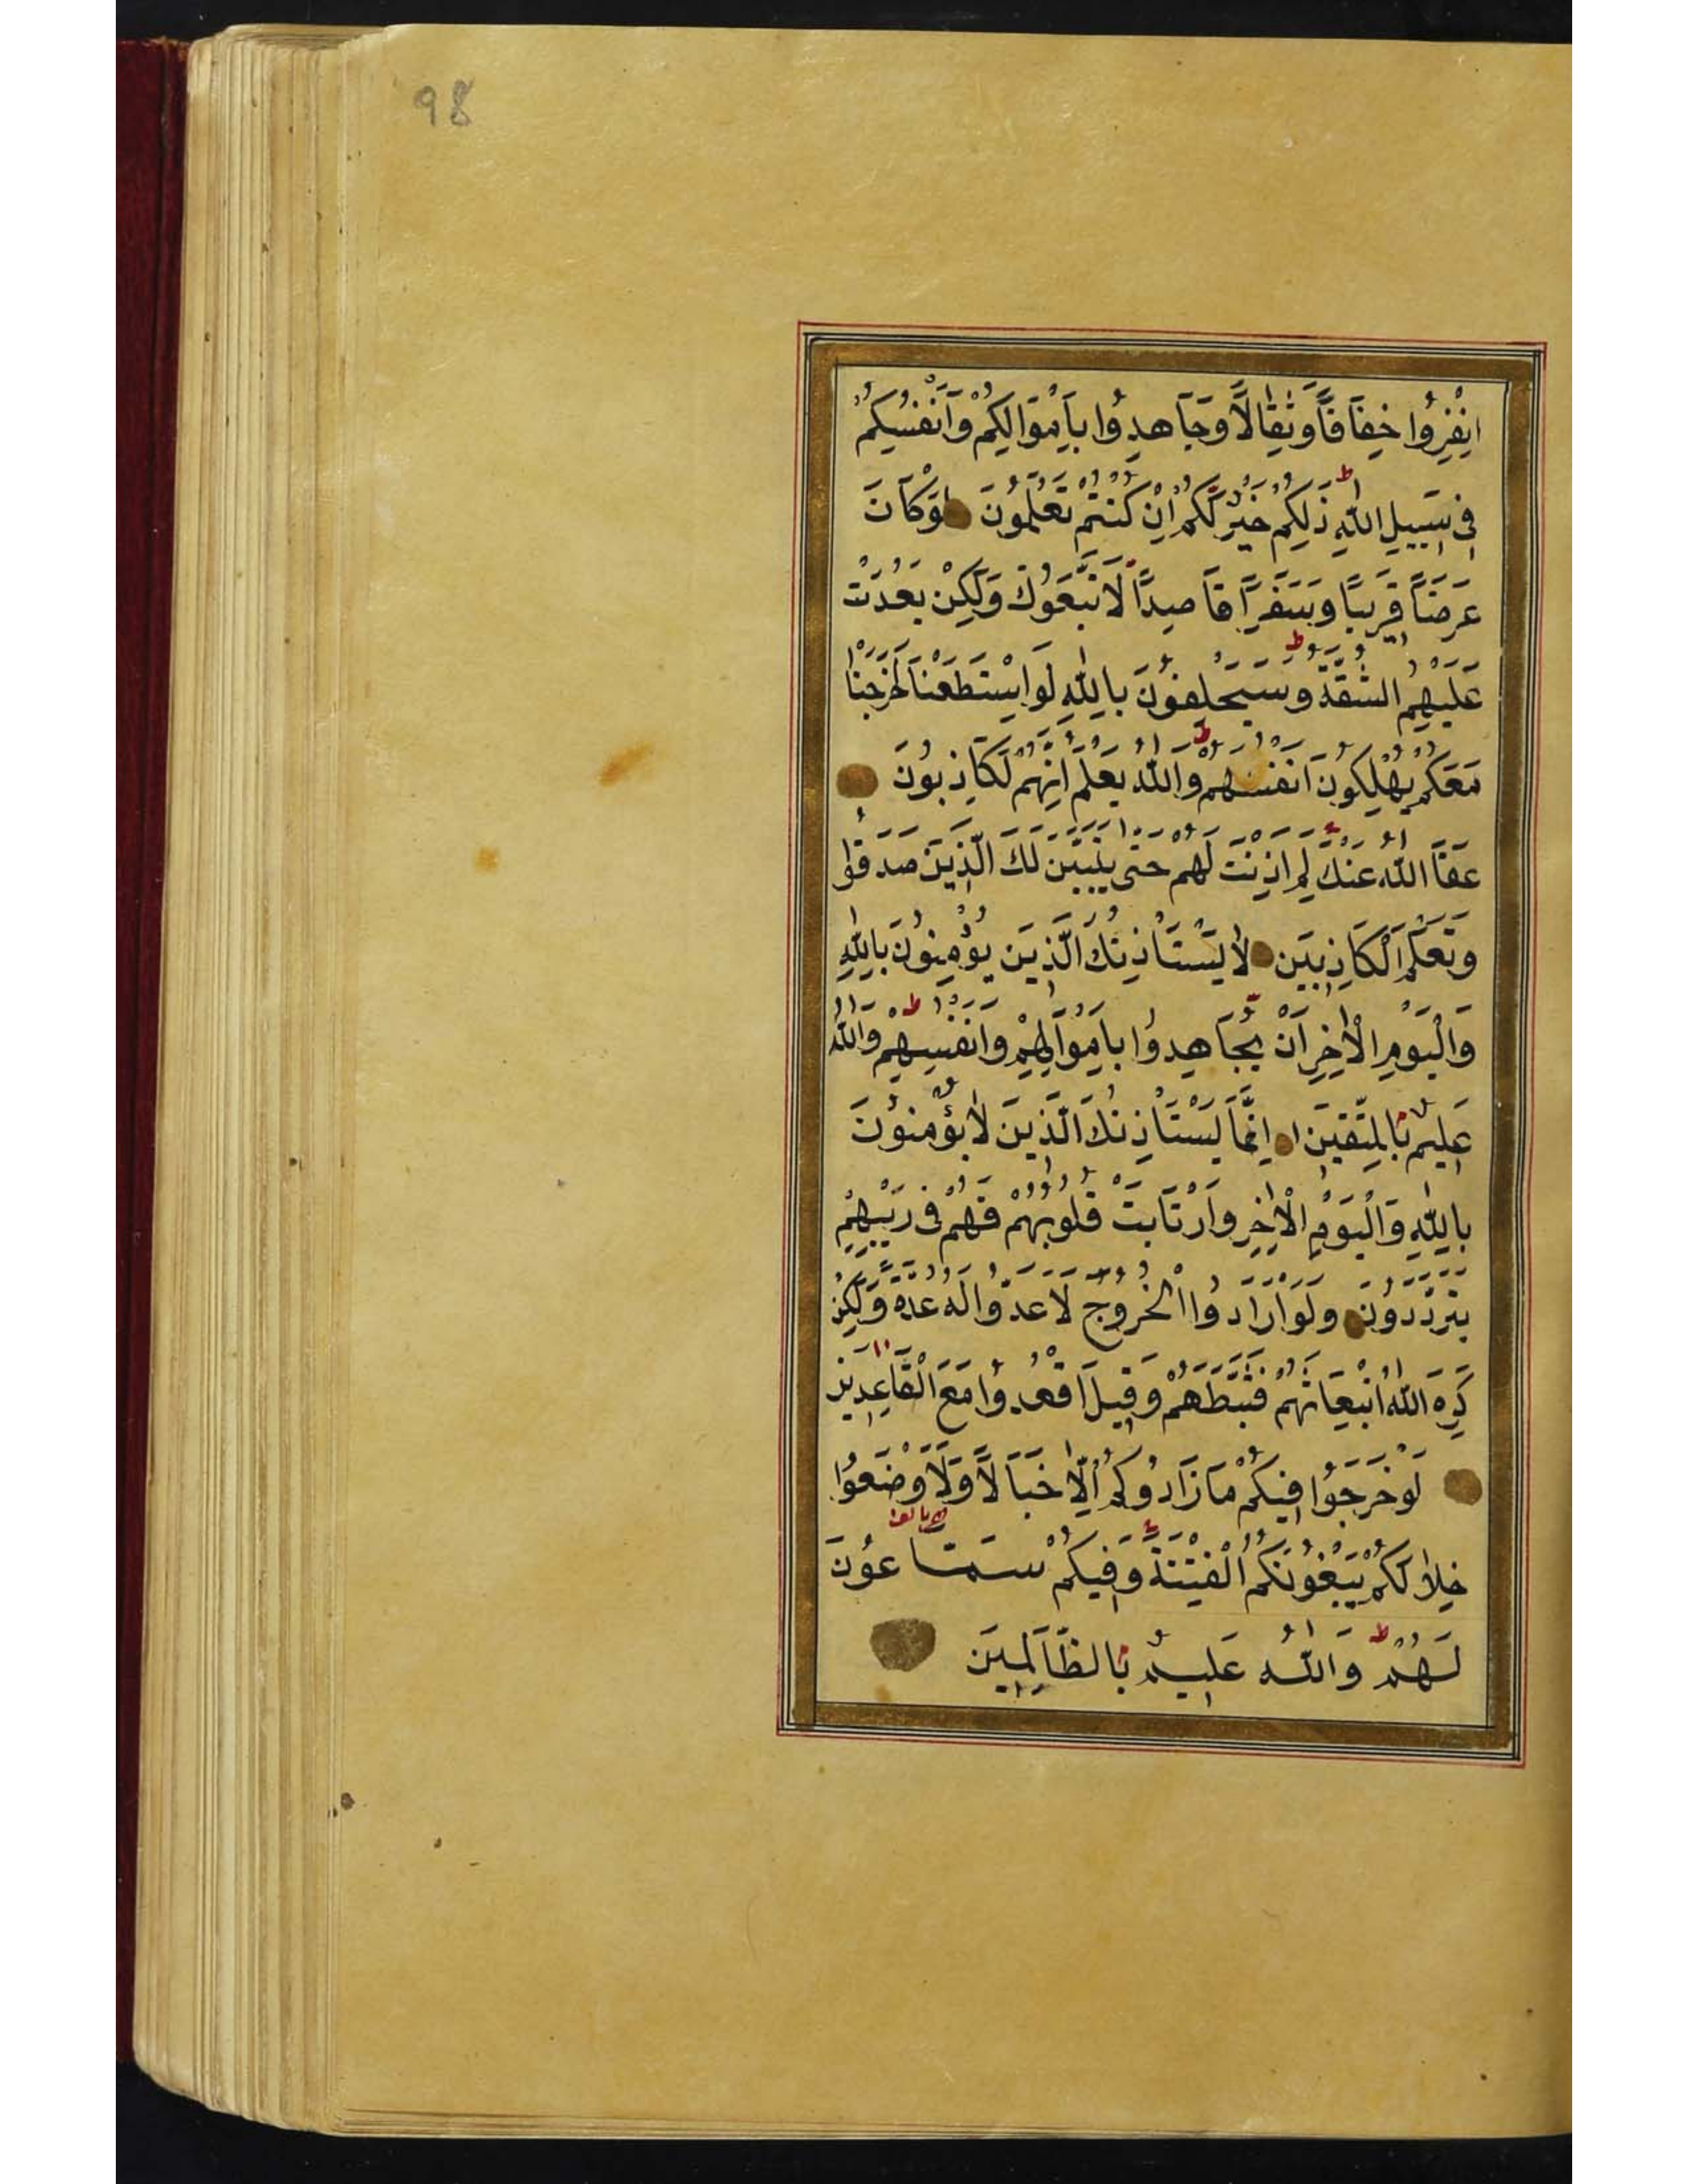 98
انْفِرُوا خِفَافًا وَثِقَالًا وَجَاهِدُوا بِأَمْوَالِكُمْ وَأَنْفُسِكُمْ
فِي سَبِيلِ اللَّهِ ذَلِكُمْ خَيْرٌ لَكُمْ إِنْ كُنْتُمْ تَعْلَمُونَ لَوْ كَانَ
عَرَضًا قَرِيبًا وَسَفَرًا قَاصِدًا لَاتَّبَعُوكَ وَلَكِنْ بَعُدَتْ
عَلَيْهِمُ الشُّقَّةُ وَسَيَحْلِفُونَ بِاللَّهِ لَوِ اسْتَطَعْنَا لَخَرَجْنَا
مَعَكُمْ يُهْلِكُونَ أَنْفُسَهُمْ وَاللَّهُ يَعْلَمُ إِنَّهُمْ لَكَاذِبُونَ
عَفَا اللَّهُ عَنْكَ لِمَ أَذِنْتَ لَهُمْ حَتَّى يَتَبَيَّنَ لَكَ الَّذِينَ صَدَقُوا
وَتَعْلَمَ الْكَاذِبِينَ لَا يَسْتَأْذِنُكَ الَّذِينَ يُؤْمِنُونَ بِاللَّهِ
وَالْيَوْمِ الْآخِرِ أَنْ يُجَاهِدُوا بِأَمْوَالِهِمْ وَأَنْفُسِهِمْ وَاللَّهُ
عَلِيمٌ بِالْمُتَّقِينَ إِنَّمَا يَسْتَأْذِنُكَ الَّذِينَ لَا يُؤْمِنُونَ
بِاللَّهِ وَالْيَوْمِ الْآخِرِ وَارْتَابَتْ قُلُوبُهُمْ فَهُمْ فِي رَيْبِهِمْ
يَتَرَدَّدُونَ وَلَوْ أَرَادُوا الْخُرُوجَ لَأَعَدُّوا لَهُ عُدَّةً وَلَكِنْ
كَرِهَ اللَّهُ انْبِعَاثَهُمْ فَثَبَّطَهُمْ وَقِيلَ اقْعُدُوا مَعَ الْقَاعِدِينَ
لَوْ خَرَجُوا فِيكُمْ مَا زَادُوكُمْ إِلَّا خَبَالًا وَلَأَوْضَعُوا
خِلَالَكُمْ يَبْغُونَكُمُ الْفِتْنَةَ وَفِيكُمْ سَمَّاعُونَ
لَهُمْ وَاللَّهُ عَلِيمٌ بِالظَّالِمِينَ